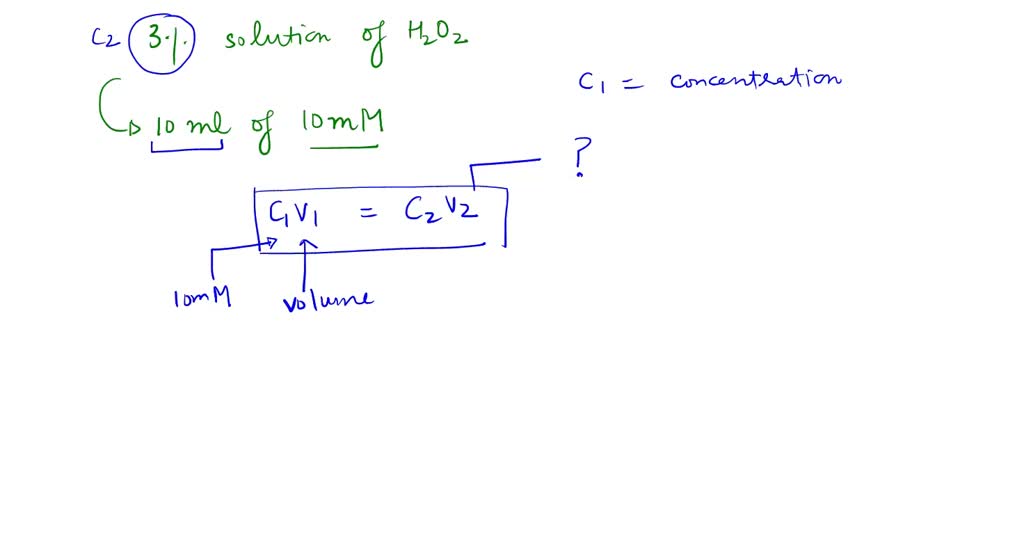 C2 3% solution of H₂O₂
C₁ = concentration
10 ml of 10mM
?
C₁V₁ = C₂V₂
10mM volume